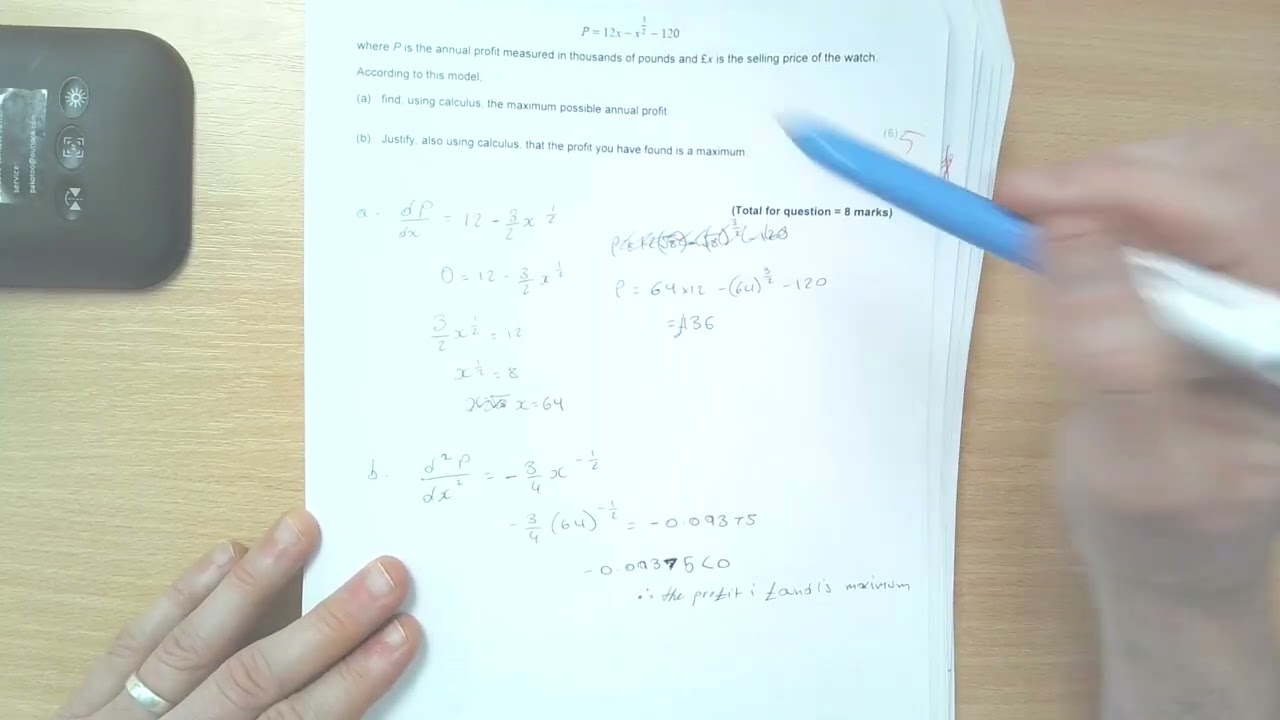 P = 12x − x^{3/2} − 120
where P is the annual profit measured in thousands of pounds and £x is the selling price of the watch.
According to this model,
(a) find, using calculus, the maximum possible annual profit.
(6) 5
(b) Justify, also using calculus, that the profit you have found is a maximum.
(Total for question = 8 marks)
a. dP/dx = 12 - 3/2 x^{1/2}
0 = 12 - 3/2 x^{1/2}
3/2 x^{1/2} = 12
x^{1/2} = 8
x = 64
P = 64 x 12 - (64)^{3/2} - 120
= £136
b. d²P/dx² = - 3/4 x^{-1/2}
- 3/4 (64)^{-1/2} = -0.09375
-0.09375 < 0
∴ the profit i found is maximum
service